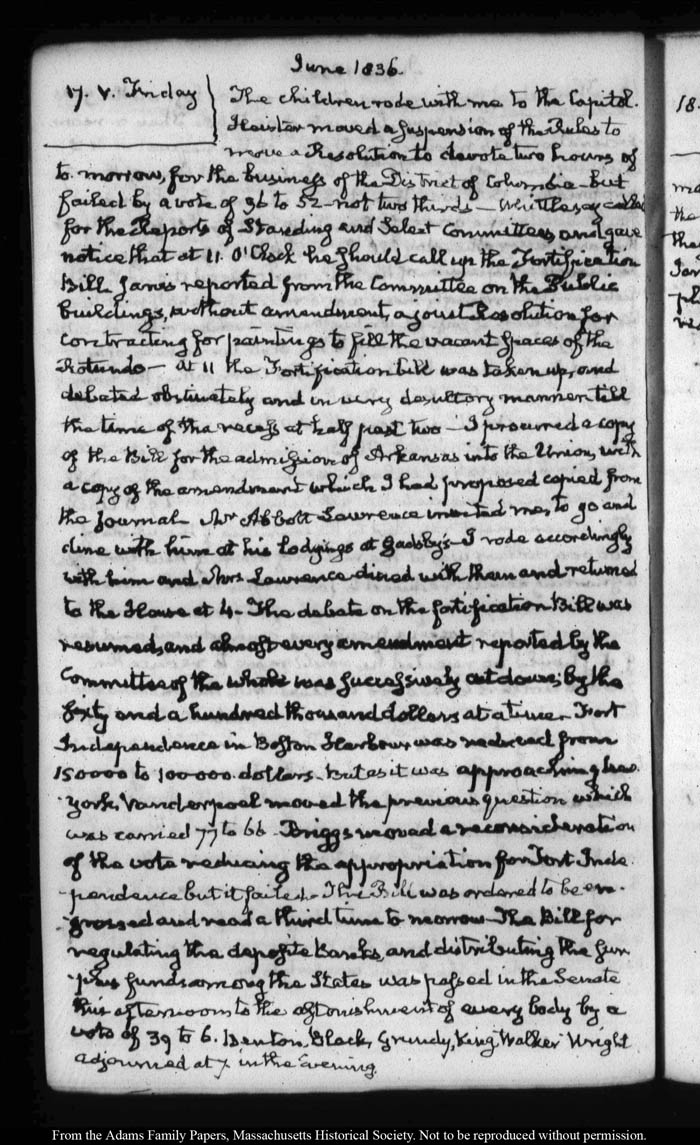 June 1836.
17. V. Friday
The children rode with me to the Capitol.
Hoister moved a suspension of the Rules to
move a Resolution to devote two hours of
to-morrow, for the business of the District of Columbia but
failed by a vote of 96 to 52 - not two thirds - Whittlesey called
for the Reports of Standing and Select Committees, and gave
notice that at 11. O'Clock he should call up the Fortification
Bill. Jarvis reported from the Committee on the Public
buildings, without amendment, a joint Resolution for
contracting for paintings to fill the vacant spaces of the
Rotundo - At 11 the Fortification bill was taken up, and
debated obstinately and in very desultory manner till
the time of the recess at half past two - I procured a copy
of the Bill for the admission of Arkansas into the Union, with
a copy of the amendment which I had proposed copied from
the Journal - Mr Abbott Lawrence invited me, to go and
dine with him at his lodgings at Gadsby's - I rode accordingly
with him and Mrs Lawrence dined with them and returned
to the House at 4 - The debate on the fortification Bill was
resumed, and almost every amendment reported by the
Committee of the whole was successively cut down, by the
fifty and a hundred thousand dollars at a time - Fort
Independence in Boston Harbour was reduced from
150000 to 100000. dollars - But as it was approaching New
York, Vanderpoel moved the previous question which
was carried 77 to 66 - Briggs moved a reconsideration
of the vote reducing the appropriation for Fort Inde-
pendence but it failed - The Bill was ordered to be en-
grossed and read a third time to morrow - The Bill for
regulating the deposite banks, and distributing the sur-
plus funds among the States was passed in the Senate
this afternoon to the astonishment of every body by a
vote of 39 to 6. Benton, Black, Grundy, King, Walker Wright
adjourned at 7 in the Evening.
18.
the
From the Adams Family Papers, Massachusetts Historical Society. Not to be reproduced without permission.